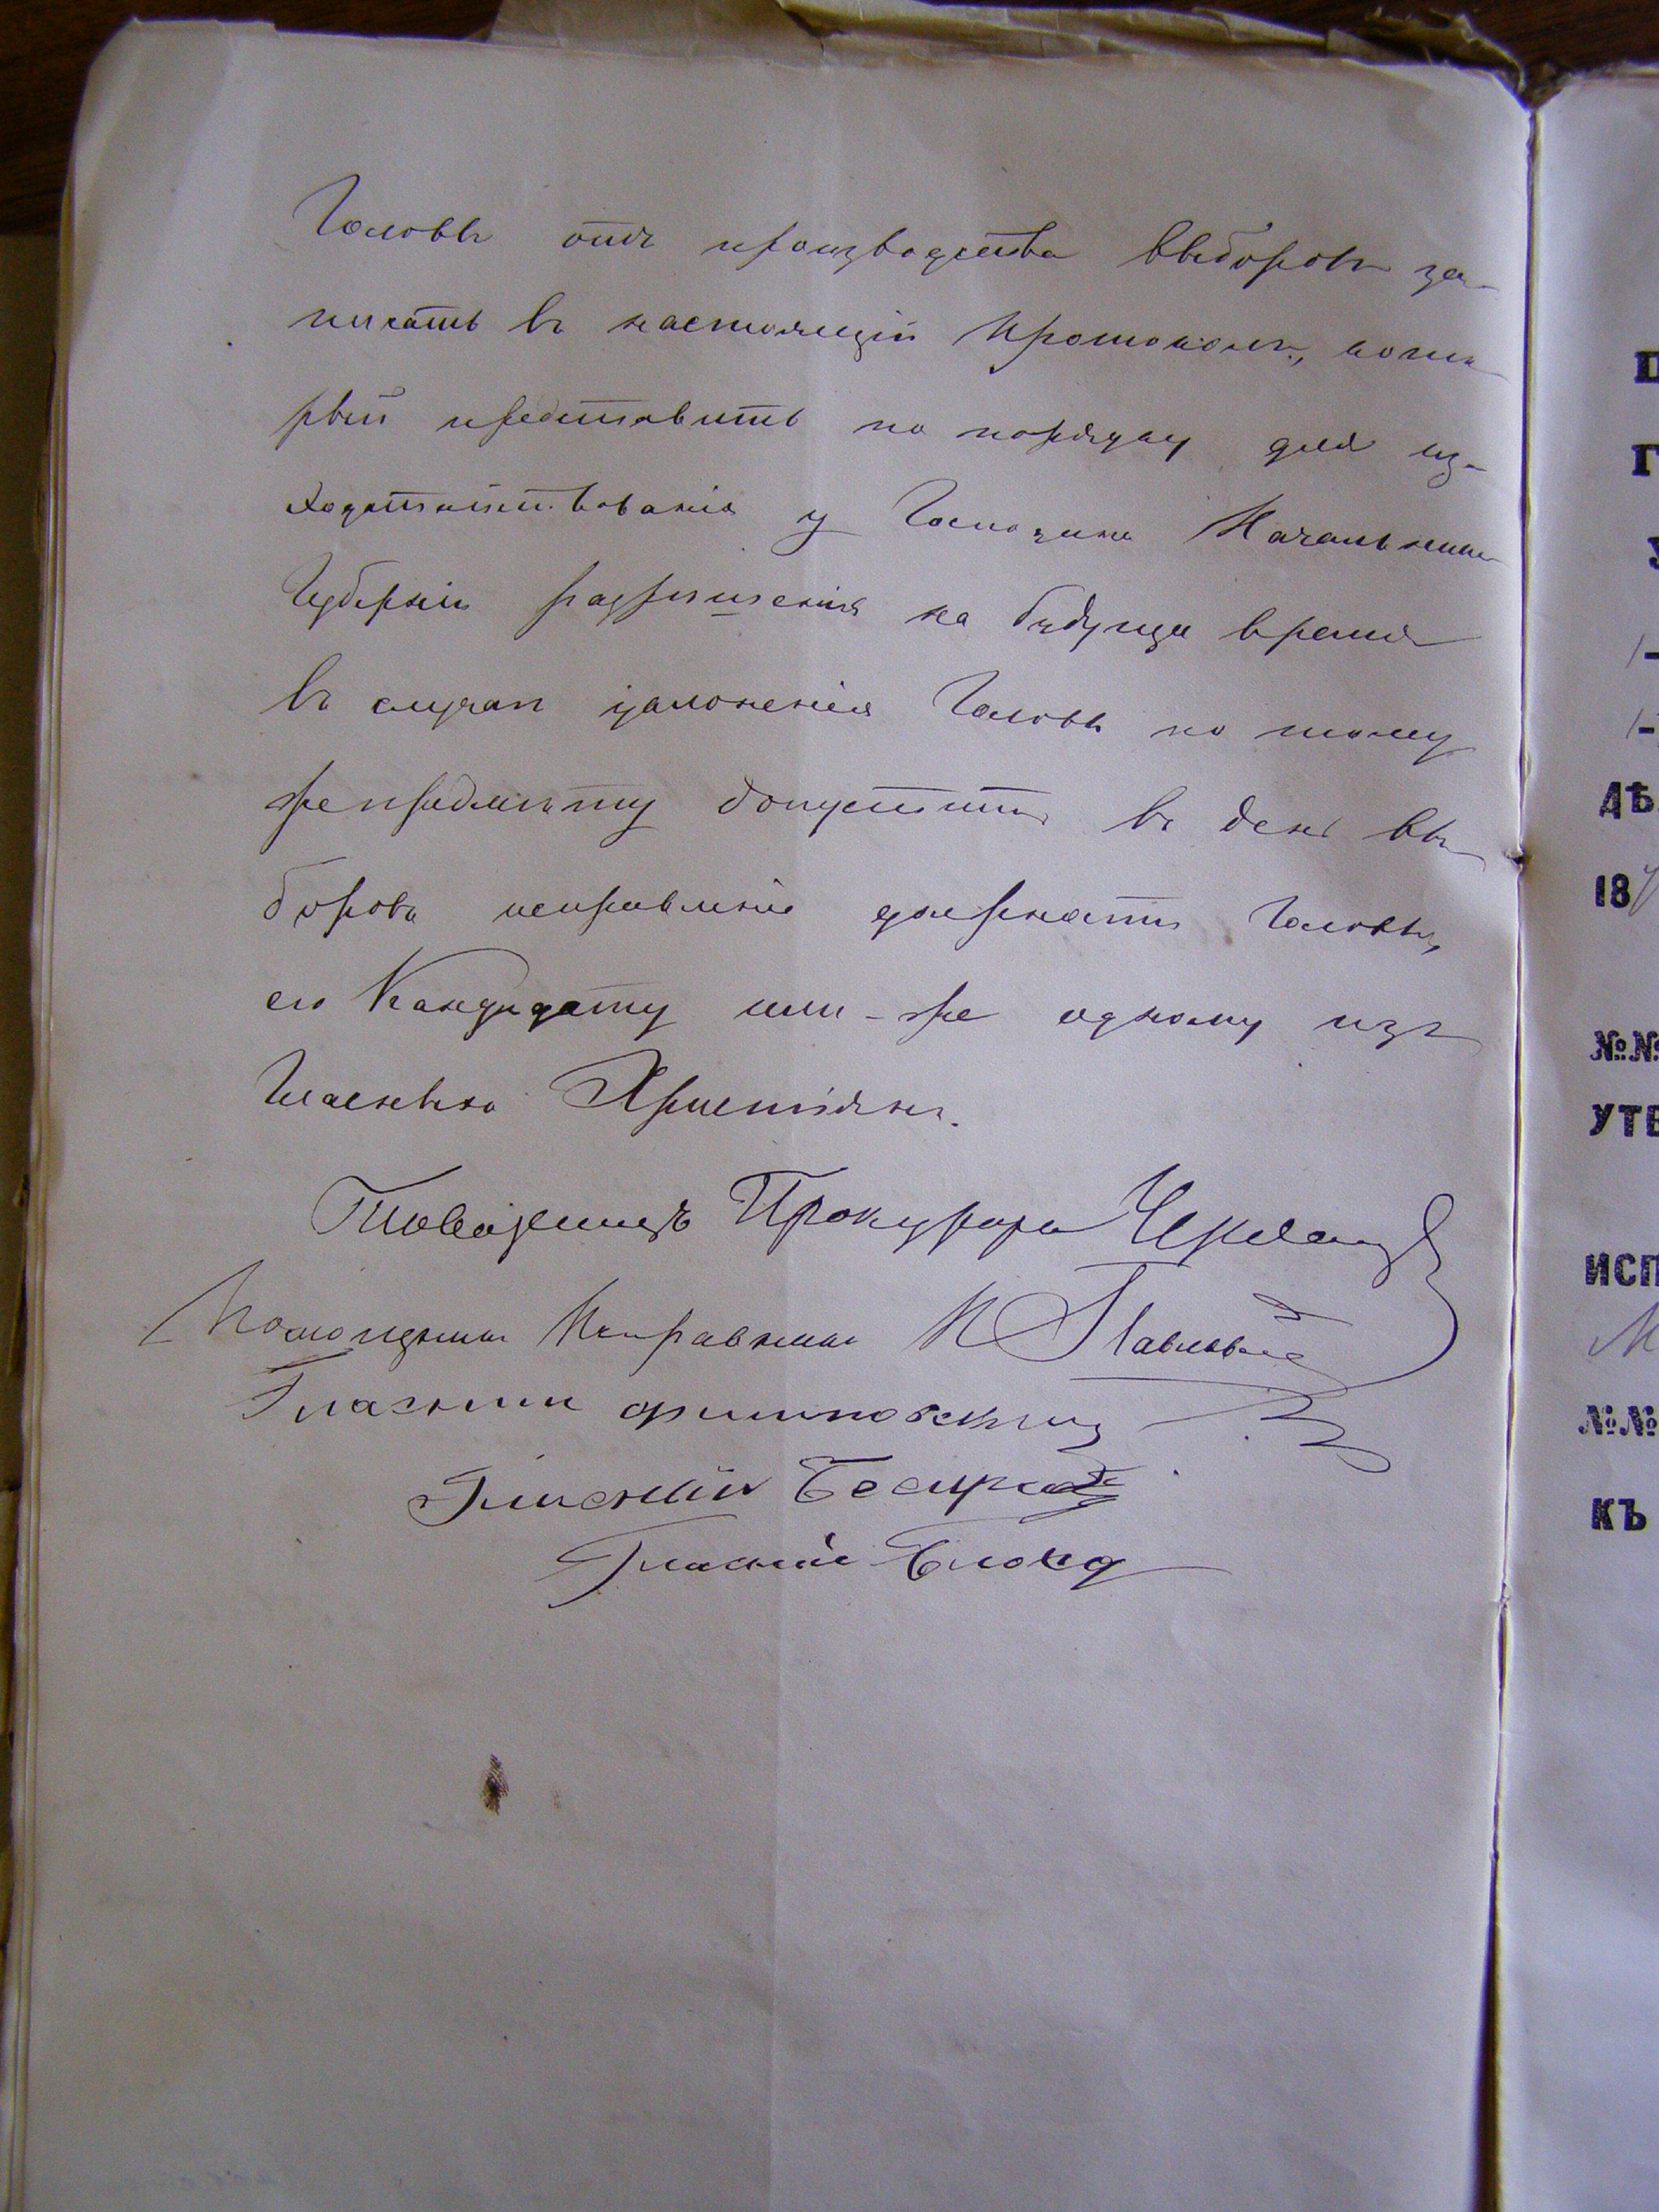 Головы отъ производства выборовъ за-
писать въ настоящій протоколъ, кото
рый представить по порядку для из-
ходатайствованія у Господина Начальника
Губерніи разрѣшенія на будуще время
въ случаѣ уклоненія Головы по тому
же предмѣту допустить въ день вы
боровъ исправленіе должности Головы,
его Кандидату или-же одному изъ
Гласныхъ Христіянъ.
Товарищъ Прокурора
Помощникъ Исправника И Павловъ
Гласный Филиповскій
Гласный
Гласный
П
Г
У
ДѢ
18
№№
УТВ
ИСП
№№
КЪ